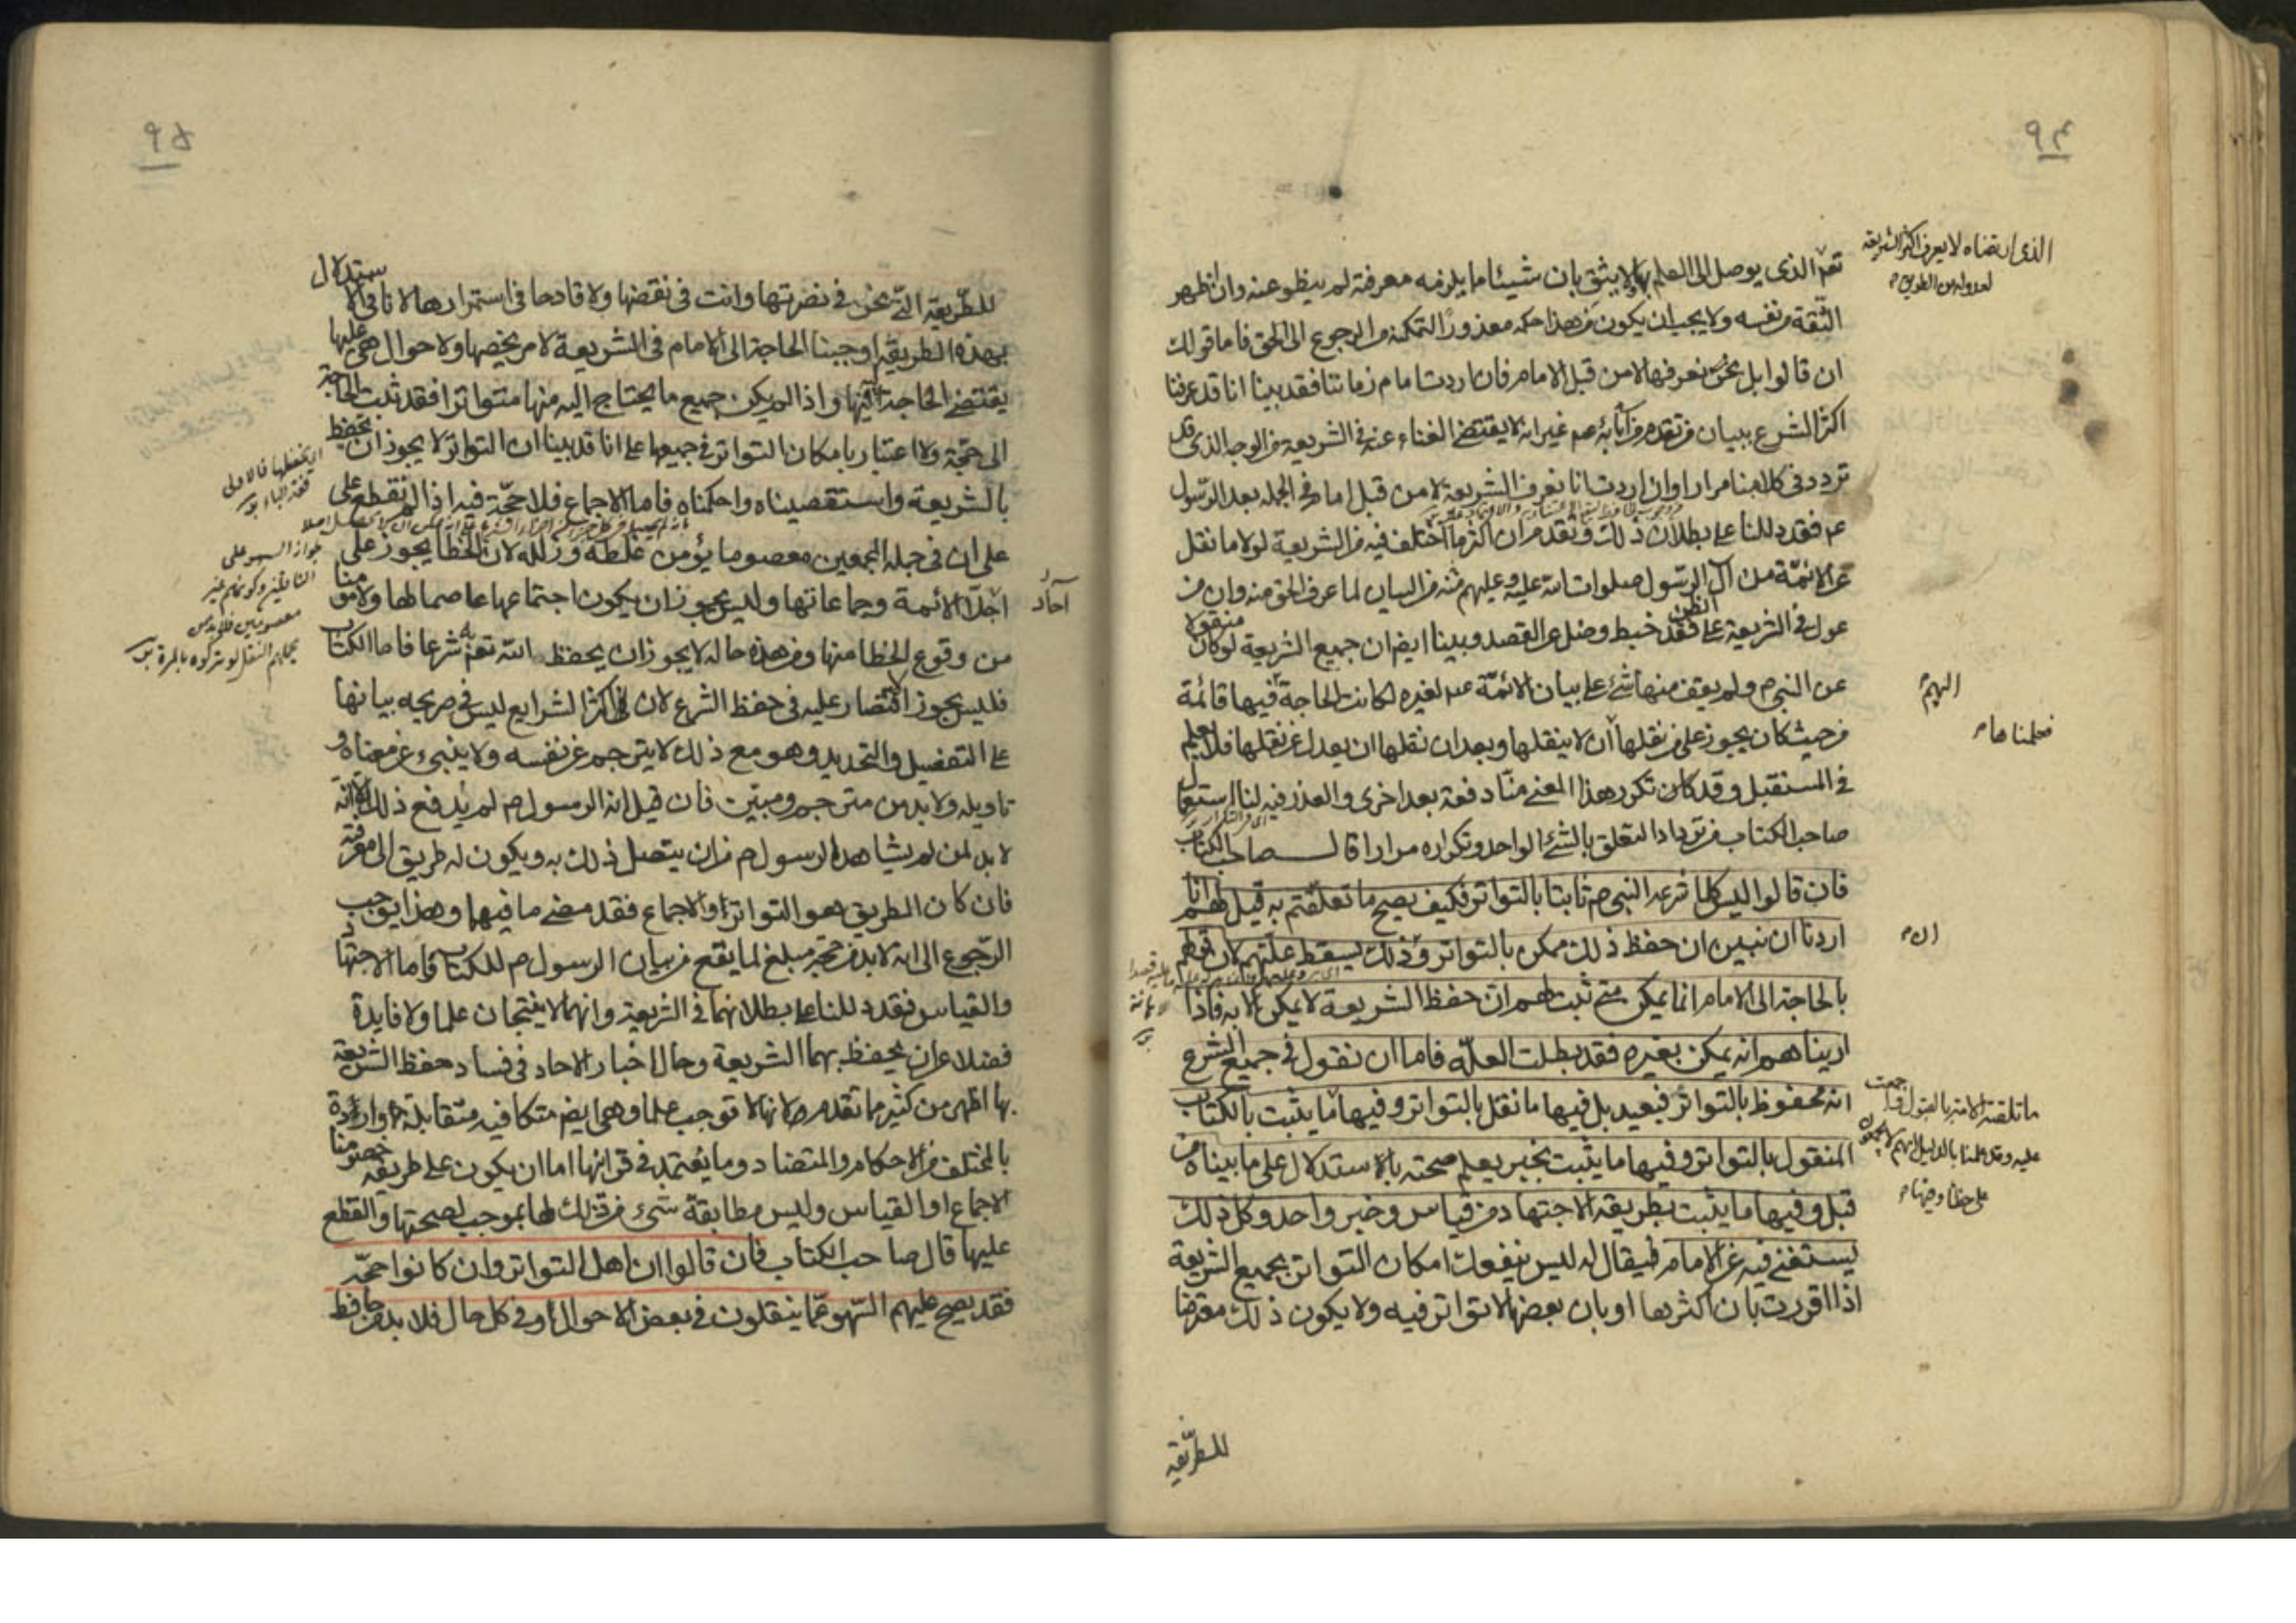 ٩٤
تعم الذى يوصل الى العلم بها ولا يثق بان شيئا مما يلزمه معرفة لم ينطو عنه وان اظهر
الثقة من نفسه ولا يجب ان يكون من هذا حكمه معذورا لتمكنه من الرجوع الى الحق فاما قولك
ان قالوا بل نحن نعرفها لا من قبل الامام فان اردت امام زماننا فقد بينا انا قد عرفنا
اكثر الشرع ببيان من تقدم من آبائه عم غير انه لا يقتضى الغناء عنه فى الشريعة من الوجه الذى قد
تردد فى كلامنا مرارا وان اردت انا نعرف الشريعة لا من قبل امام فى الجملة بعد الرسول
عم فقد دللنا على بطلان ذلك وتقدم ان اكثر ما اختلف فيه من الشريعة لولا ما نقل
عن الائمة من آل الرسول صلوات الله عليه وعليهم فيه من البيان لما عرف الحق منه وان من
عول فى الشريعة على الظن فقد خبط وضل عن القصد وبينا ايضا ان جميع الشريعة لو كان منقولا
عن النبى ص ولم يقف منها شئ على بيان الائمة عم لغيره لكانت الحاجة فيها قائمة
من حيث كان يجوز على من نقلها ان لا ينقلها وبعد ان نقلها ان يعدل عن نقلها فلا يعلم
فى المستقبل وقد كان تكرر هذا المعنى منا دفعة بعد اخرى والعذر فيه لنا استعمال
صاحب الكتاب من ترداد التعلق بالشئ الواحد وتكراره مرارا قال صاحب الكتاب
فان قالوا اليس كلما شرعه النبى ص ثابتا بالتواتر فكيف يصح ما تعلقتم به قيل لهم انا
اردنا ان نبين ان حفظ ذلك ممكن بالتواتر وذلك يسقط علتهم لان قولهم
بالحاجة الى الامام انما يمكن متى ثبت لهم ان حفظ الشريعة لا يمكن الا به فاذا
اريناهم انه يمكن بغيره فقد بطلت العلة فاما ان نقول فى جميع الشرع
انه محفوظ بالتواتر فبعيد بل فيها ما نقل بالتواتر وفيها ما يثبت بالكتاب
المنقول بالتواتر وفيها ما يثبت بخبر يعلم صحته بالاستدلال على ما بيناه من
قبل وفيها ما يثبت بطريقة الاجتهاد من قياس وخبر واحد وكل ذلك
يستغنى فيه عن الامام فيقال له ليس ينفعك امكان التواتر بجميع الشريعة
اذا اقررت بان اكثرها او بان بعضها لا تواتر فيه ولا يكون ذلك معترضا
للطريقة
الذى ارتضاه لا يعرف اكثر الشريعة
لعدوله عن الطريق م
اليهم
فعلمناها م
ما تلقته الامة بالقبول
عليه وقد علمنا بالدليل انهم لا يجمعون
على خطا
٩٥
للطريقة التى نحن فى نصرتها وانت فى نقضها ولا قادحا فى استمرارها لانا فى الاستدلال
بهذه الطريقة اوجبنا الحاجة الى الامام فى الشريعة لامر يخصها ولاحوال هى عليها
يقتضى الحاجة فيها واذا لم يكن جميع ما يحتاج اليه منها متواترا فقد ثبت الحاجة
الى حجة ولا اعتبار بامكان التواتر فى جميعها على انا قد بينا ان التواتر لا يجوز ان يحفظ
بالشريعة واستقصيناه واحكمناه فاما الاجماع فلا حجة فيه اذا لم نقطع على
على ان فى جملة المجمعين معصوما يؤمن غلطه وزلله لان الخطا يجوز على
احاد الائمة وجماعاتها وليس يجوز ان يكون اجتماعها عاصما لها ولا مؤمنا
من وقوع الخطا منها ومن هذه حاله لا يجوز ان يحفظ الله تعم به شرعا فاما الكتاب
فليس يجوز الاقتصار عليه فى حفظ الشرع لان اكثر الشرايع ليس فى صريحه بيانها
على التفضيل والتحديد وهو مع ذلك لا يترجم عن نفسه ولا ينبئ عن معناه و
تاويله ولا بد من مترجم ومبين فان قيل انه الرسول ص لم يدفع ذلك الا انه
لا بد لمن لم يشاهد الرسول ص من ان يتصل ذلك به ويكون له طريق الى معرفته
فان كان الطريق هو التواتر او الاجماع فقد مضى ما فيهما وهذا يوجب
الرجوع الى انه لا بد من حجة مبلغ لما يقع من بيان الرسول ص للكتاب فاما الاجتهاد
والقياس فقد دللنا على بطلانهما فى الشريعة وانهما لا ينتجان علما ولا فايدة
فضلا عن ان يحفظ بهما الشريعة وحال اخبار الاحاد فى فساد حفظ الشريعة
بها اظهر من كثير مما تقدم لانها لا توجب علما وهى ايضا متكافيه متقابلة واردة
بالمختلف من الاحكام والمتضاد وما يعتمد فى قرائنها اما ان يكون على طريقة خصومنا
الاجماع او القياس وليس مطابقة شئ من ذلك لها بموجب لصحتها والقطع
عليها قال صاحب الكتاب فان قالوا ان اهل التواتر وان كانوا حجة
فقد يصح عليهم السهو عما ينقلون فى بعض الاحوال او فى كل حال فلا بد من حافظ
آحاد
جواز السهو على
الناقلين وكونهم غير
معصومين